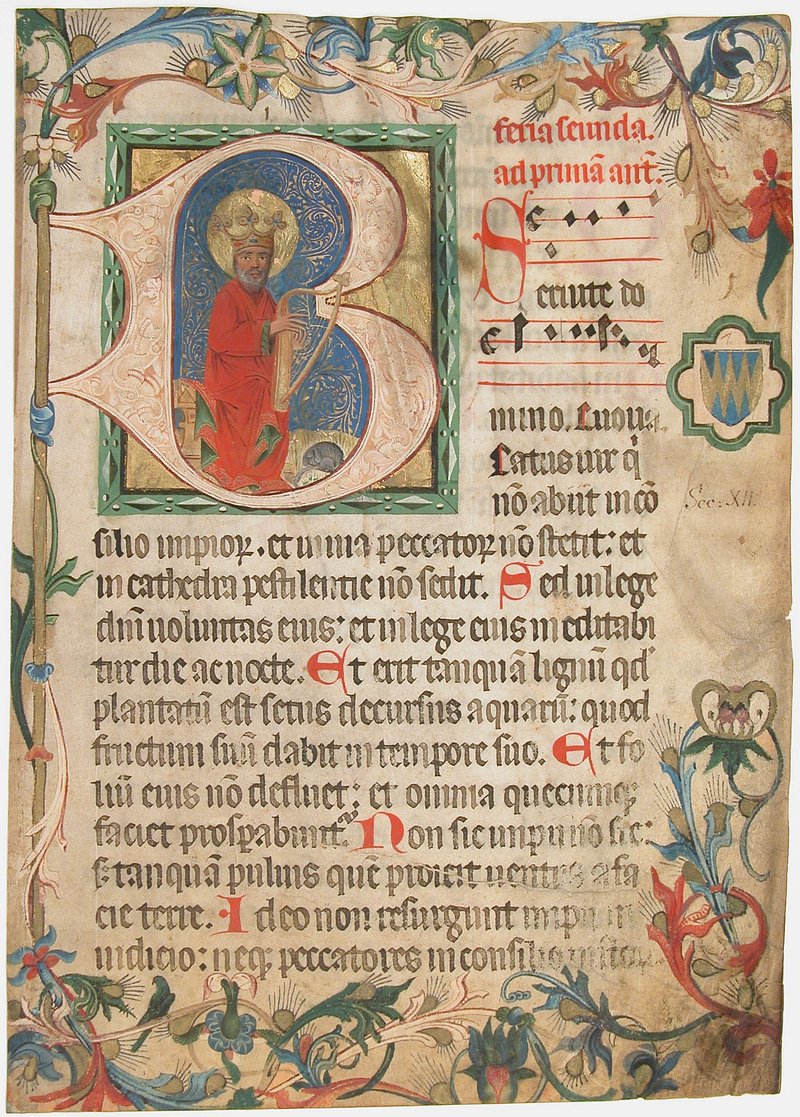 feria secunda.
ad primā ant̄.
Seruite do
mino. Euoua
B
eatus uir q̄
nō abiit in cō
silio impioꝝ. et in uia peccatoꝝ nō stetit: et
in cathedra pestilentie nō sedit. Sed in lege
dn̄i uoluntas eius: et in lege eius meditabi
tur die ac nocte. Et erit tanquā lignū qd̓
plantatū est secus decursus aquarū: quod
fructum suū dabit in tempore suo. Et fo
liū eius nō defluet: et omnia quecumqꝫ
faciet prosꝑabunt᷑. Non sic impii nō sic:
s; tanquā puluis quē proicit uentus a fa
cie terre. Ideo non resurgunt impii in
iudicio: neqꝫ peccatores in consilio
Sec. XII.